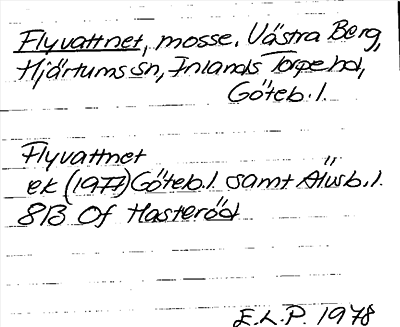 Flyvattnet, mosse. Västra Berg,
Hjärtums sn, Inlands Torpe hd,
Göteb. l.
Flyvattnet
ek (1977) Göteb. l samt Älvsb. l.
8B 0f Hasteröd
E.L.P. 1978